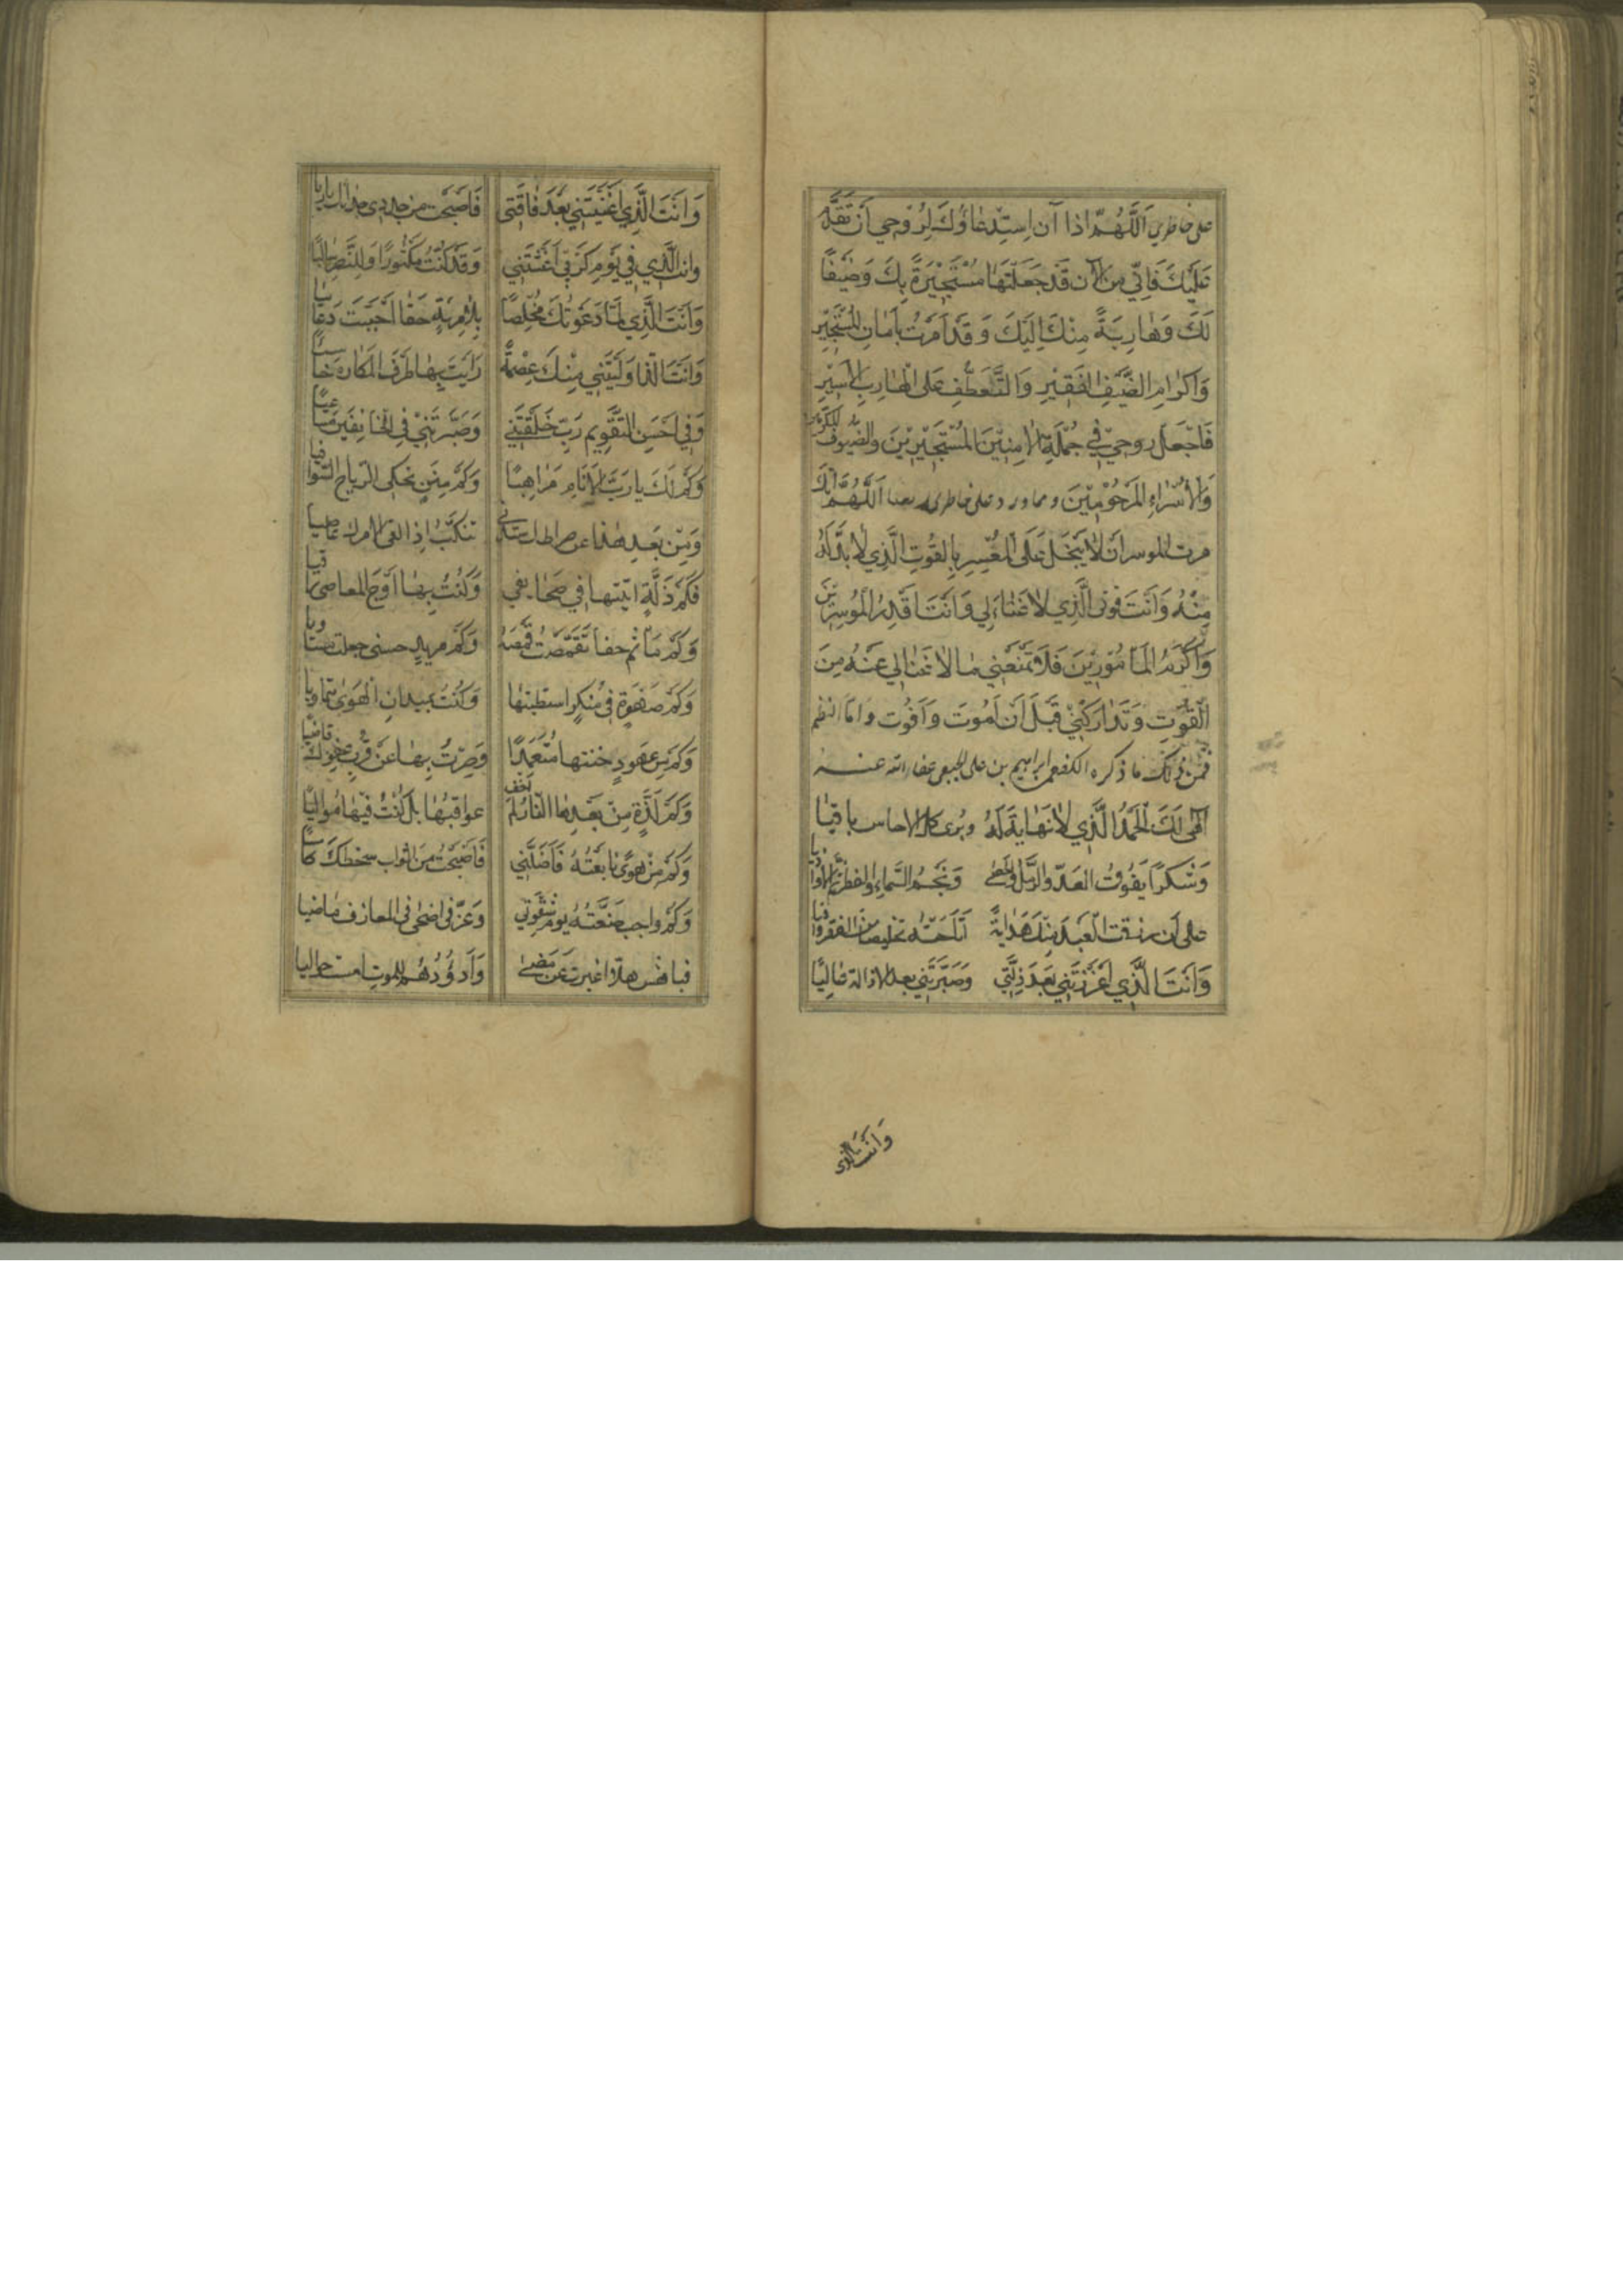 على خاطرى اَللّهُمَّ اذا آن اِستِدعاؤُكَ لِرُوحِي اَن تَقدَمَ
عَلَيكَ فَاِنّي مِنَ الآن قَد جَعَلتَها مُستَجيرَةً بِكَ وَضَيفًا
لَكَ وَهارِبَةً مِنكَ اِلَيكَ وَقَد اَمَرتَ بِاَمانِ المُستَجيرِ
وَاكرامِ الضَّيفِ الفَقيرِ وَالتَّعَطُّفِ عَلَى الهارِبِ الاَسيرِ
فَاجعَل روحي في جُملَةِ الامِنينَ المُستَجيرينَ والضُّيوفِ المكرَّمين
وَالاُسَراءِ المَرحُومينَ ومما ورد على خاطرى بعضا اَللّهُمَّ اِنَّكَ
مرت الموسر اَن لا يَبخَلَ عَلَى المُعسِرِ بِالقُوتِ الَّذي لا بُدَّ لَهُ
مِنهُ وَاَنتَ قوتى الَّذي لا غَناءَ لي وَاَنتَ اَقدَرُ المُوسِرينَ
وَاَكرَمُ المَأمُورينَ فَلا تَمنَعني ما لا غَنا لي عَنهُ مِنَ
القُوتِ وَتَدارَكني قَبلَ اَن اَمُوتَ وَاَفُوت واما النظم
فمن ذلك ما ذكره الكفعمى ابراهيم بن على الجبعى عفا الله عنه
الهى لَكَ الحَمدُ الَّذي لا نَهايَةَ لَهُ ويرى كل الاحاس باقيا
وَشُكرًا يَفُوتُ العَدّ والرَّملَ والحصى وَنَجمَ السَّماءِ والقطر ثم الاواديا
على اَن رزقت العَبدَ مِنكَ هِدايَةً اَتاحَتهُ تخليصا من الفقر وافيا
وَاَنتَ الَّذي اَعزَزتَني بَعدَ ذِلَّتي وَصَيَّرتَني بعد الاذالة عاليًا
وَانتَ الَّذى
وَانَتَ الَّذي اَغنَيتَني بَعدَ فاقَتى فَاَصبَحتُ من جدوى جدائك راريا
وانت الَّذي في يَومِ كَربي اَغَثتَني وَقَد كُنتُ مَكثُورًا وَلِلنَّصرِ ساليًا
وَاَنتَ الَّذي لَمّا دَعَوتُكَ مُخلِصًا بِلا مِريَةٍ حَقًا اَجَبتَ دُعائيا
وَاَنتَ الَّذي اَولَيتَني مِنكَ عِصمَةً رَاَيتُ بِها طَرفَ المَكارِهِ خاسئا
وَفي اَحسَنِ التَّقويمِ رَبّ خَلَقتَني وَصَيَّرتَني فِى الخائِفينَ
وَكَم لَكَ يا رَبَّ الاَنامِ مَواهِبًا وَكَم مِنَنٍ تحكى الرياح السَّوافيا
وَمِن بَعدِ هٰذا عن صراطك تنكبُ اذا القى الامر لك عاصيا
فَكَم زَلَّةٍ اثبتها في صَحائِفي وَكُنتُ بِها اَوجَ المعاصى راقيا
وَكَم مَأثم حقا تَقَمَّصتُ قُمصَهُ وَكَم مِن يد حسنى جعلت
وَكَم صَهوَةٍ فى مُنكَرٍ استطبتها وَكُنتُ بميدانِ الهَوىٰ
وَكَم من عُهودٍ خنتها مُتَعَمِّدًا وَصِرتُ بِها عَن قُربِ عفوك قاصيا
وَكَم لَذَّةٍ مِن بَعدِها النّار لم اَخَف عواقِبُها بَل كُنتُ فيها مُواليًا
وَكَم مِن هَوىً تابَعتُهُ فَاَضَلَّني فَاَصبَحتُ مِن اثواب سخطك كاسيًا
وَكَم واجب ضَيَّعتُهُ يومَ شِقوَتي وَعَزّ فى اضحى فى المعازف ماضيا
فيا نفس هلا اعتبرت بمن مَضى وَاَدؤُرُهُم للموت امست خواليا